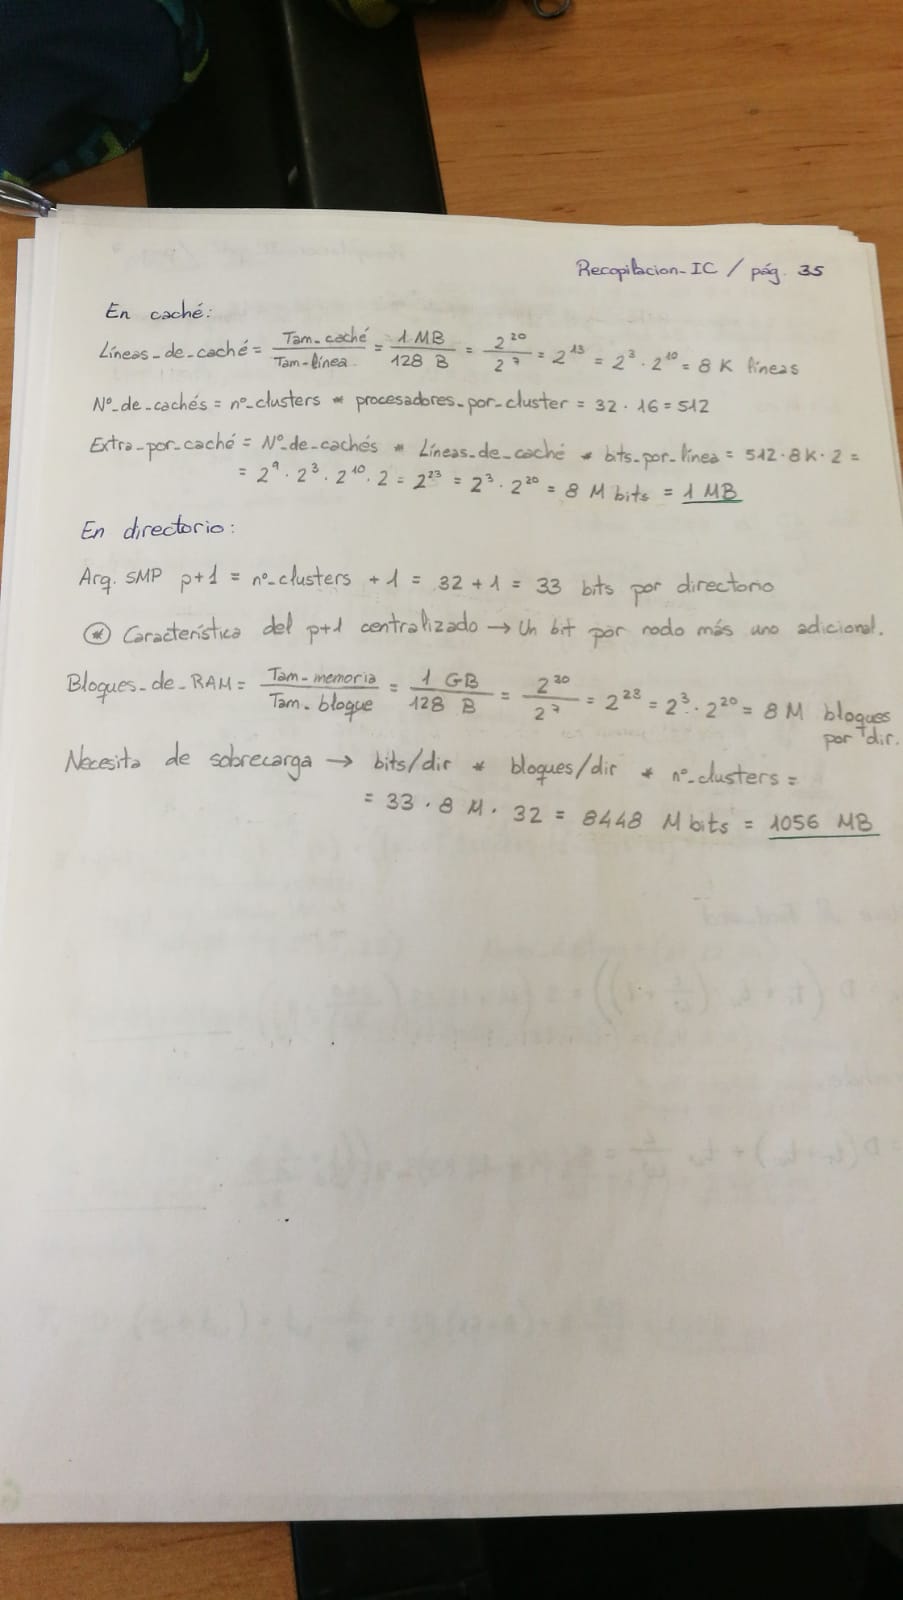 Recopilacion_IC / pág. 35
En caché:
Líneas_de_caché = Tam_caché / Tam_línea = 1 MB / 128 B = 2^20 / 2^7 = 2^13 = 2^3 · 2^10 = 8 K líneas
Nº_de_cachés = nº_clusters * procesadores_por_cluster = 32 · 16 = 512
Extra_por_caché = Nº_de_cachés * Líneas_de_caché * bits_por_línea = 512 · 8K · 2 =
= 2^9 · 2^3 · 2^10 · 2 = 2^23 = 2^3 · 2^20 = 8 M bits = 1 MB
En directorio:
Arq. SMP p+1 = nº_clusters + 1 = 32 + 1 = 33 bits por directorio
* Característica del p+1 centralizado → Un bit por nodo más uno adicional.
Bloques_de_RAM = Tam_memoria / Tam_bloque = 1 GB / 128 B = 2^30 / 2^7 = 2^23 = 2^3 · 2^20 = 8 M bloques
por dir.
Necesita de sobrecarga → bits/dir * bloques/dir * nº_clusters =
= 33 · 8 M · 32 = 8448 M bits = 1056 MB